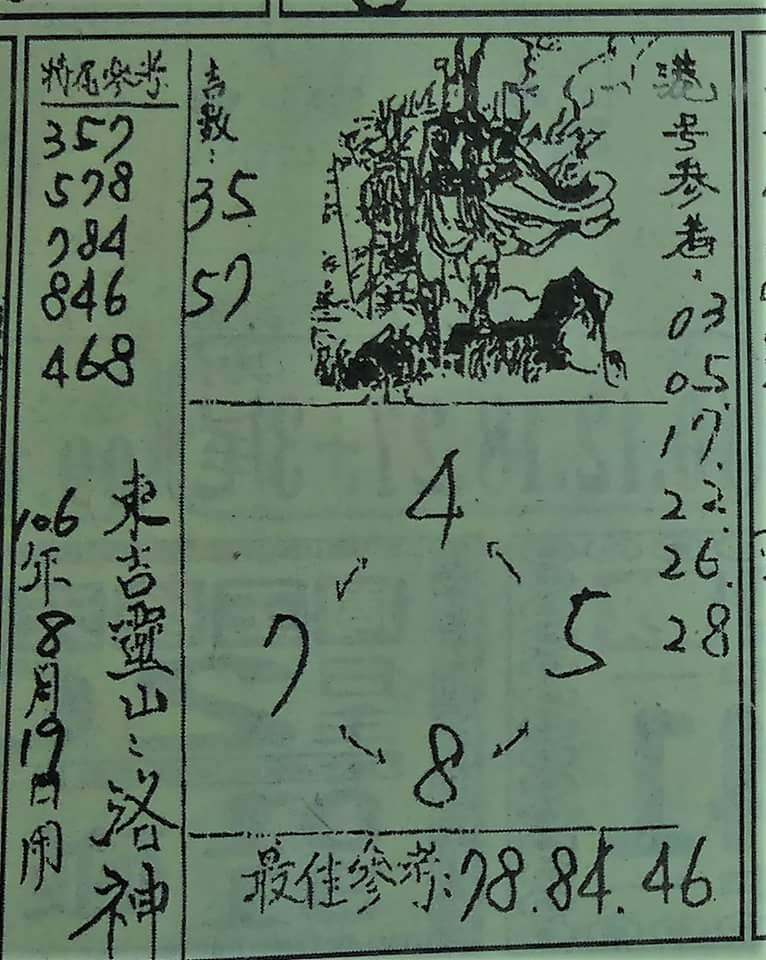 港号參考:
03
05.
17.
22.
26.
28
吉數:
35
57
4
7
5
8
最佳參考:78.84.46
特尾參考
357
578
784
846
468
東吉靈山:洛神
106年8月19日用